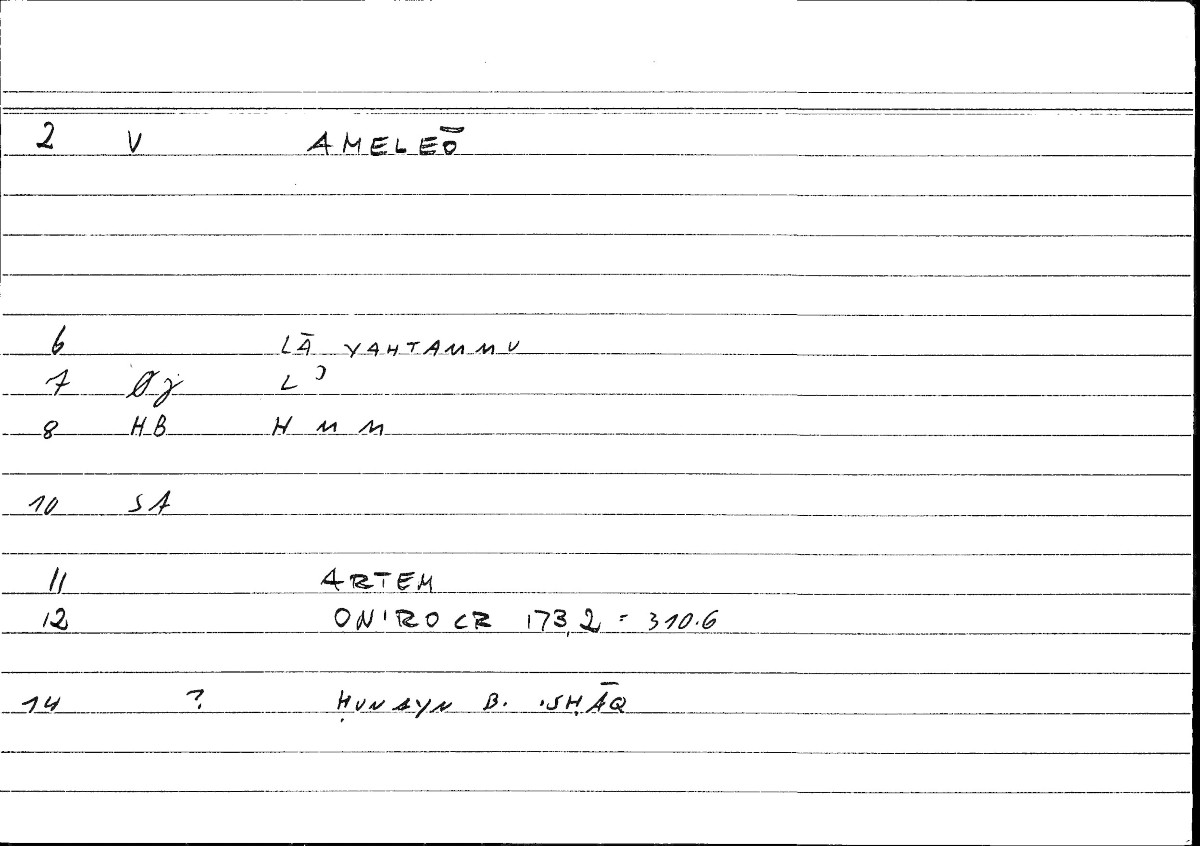 2 V AMELEŌ
6 LĀ YAHTAMMU
7 Øj L ʾ
8 HB H M M
10 SA
11 ARTEM
12 ONIROCR 173,2 = 310.6
14 ? ḤUNAYN B. ISḤĀQ